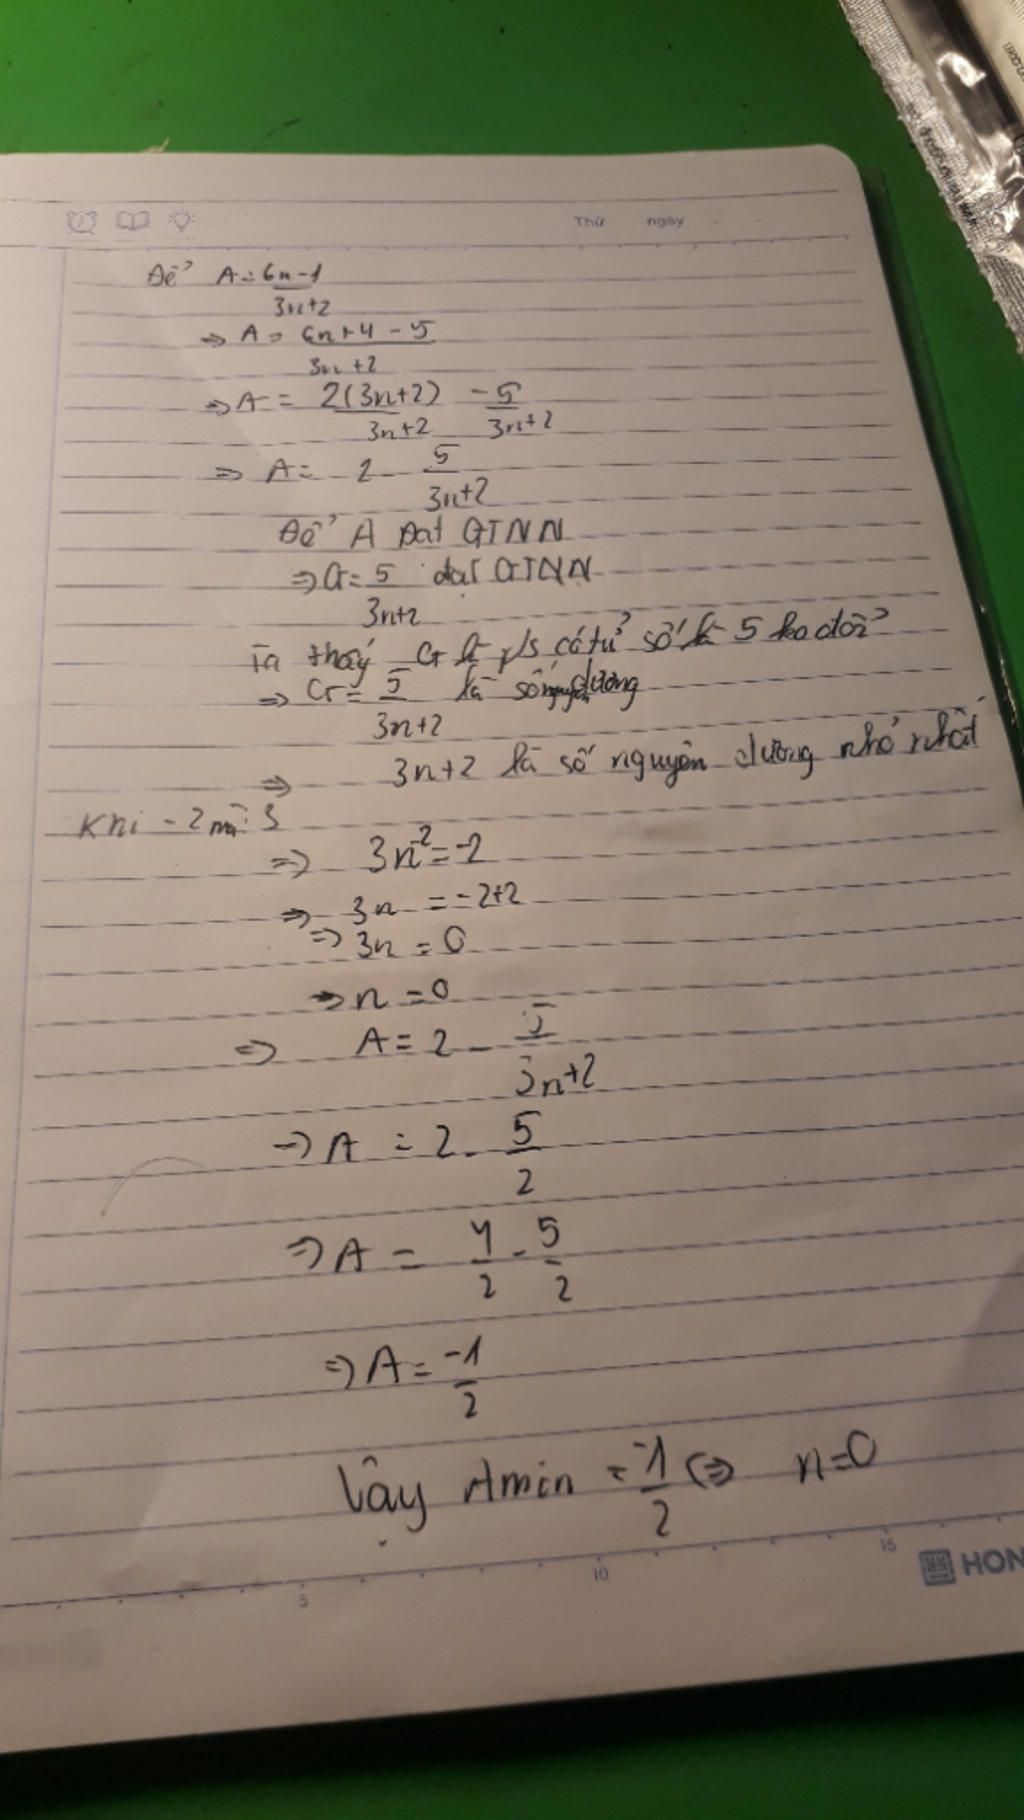 Thứ ngày
Để A = 6n-1
3n+2
=> A = 6n+4-5
3n+2
=> A = 2(3n+2) -5
3n+2 3n+2
=> A = 2 - 5
3n+2
Để A Đạt GTNN
=> G = 5 đạt GTNN
3n+2
Ta thấy G là p/s có tử số là 5 ko đổi
=> G = 5 là số nguyên dương
3n+2
=> 3n+2 là số nguyên dương nhỏ nhất
Khi -2 3
=> 3n-2=-2
=> 3n = -2+2
=> 3n = 0
=> n = 0
=> A = 2 - 5
3n+2
=> A = 2 - 5
2
=> A = 4 - 5
2 2
=> A = -1
2
Vậy Amin = -1 <=> n=0
2
5 10 15
HON